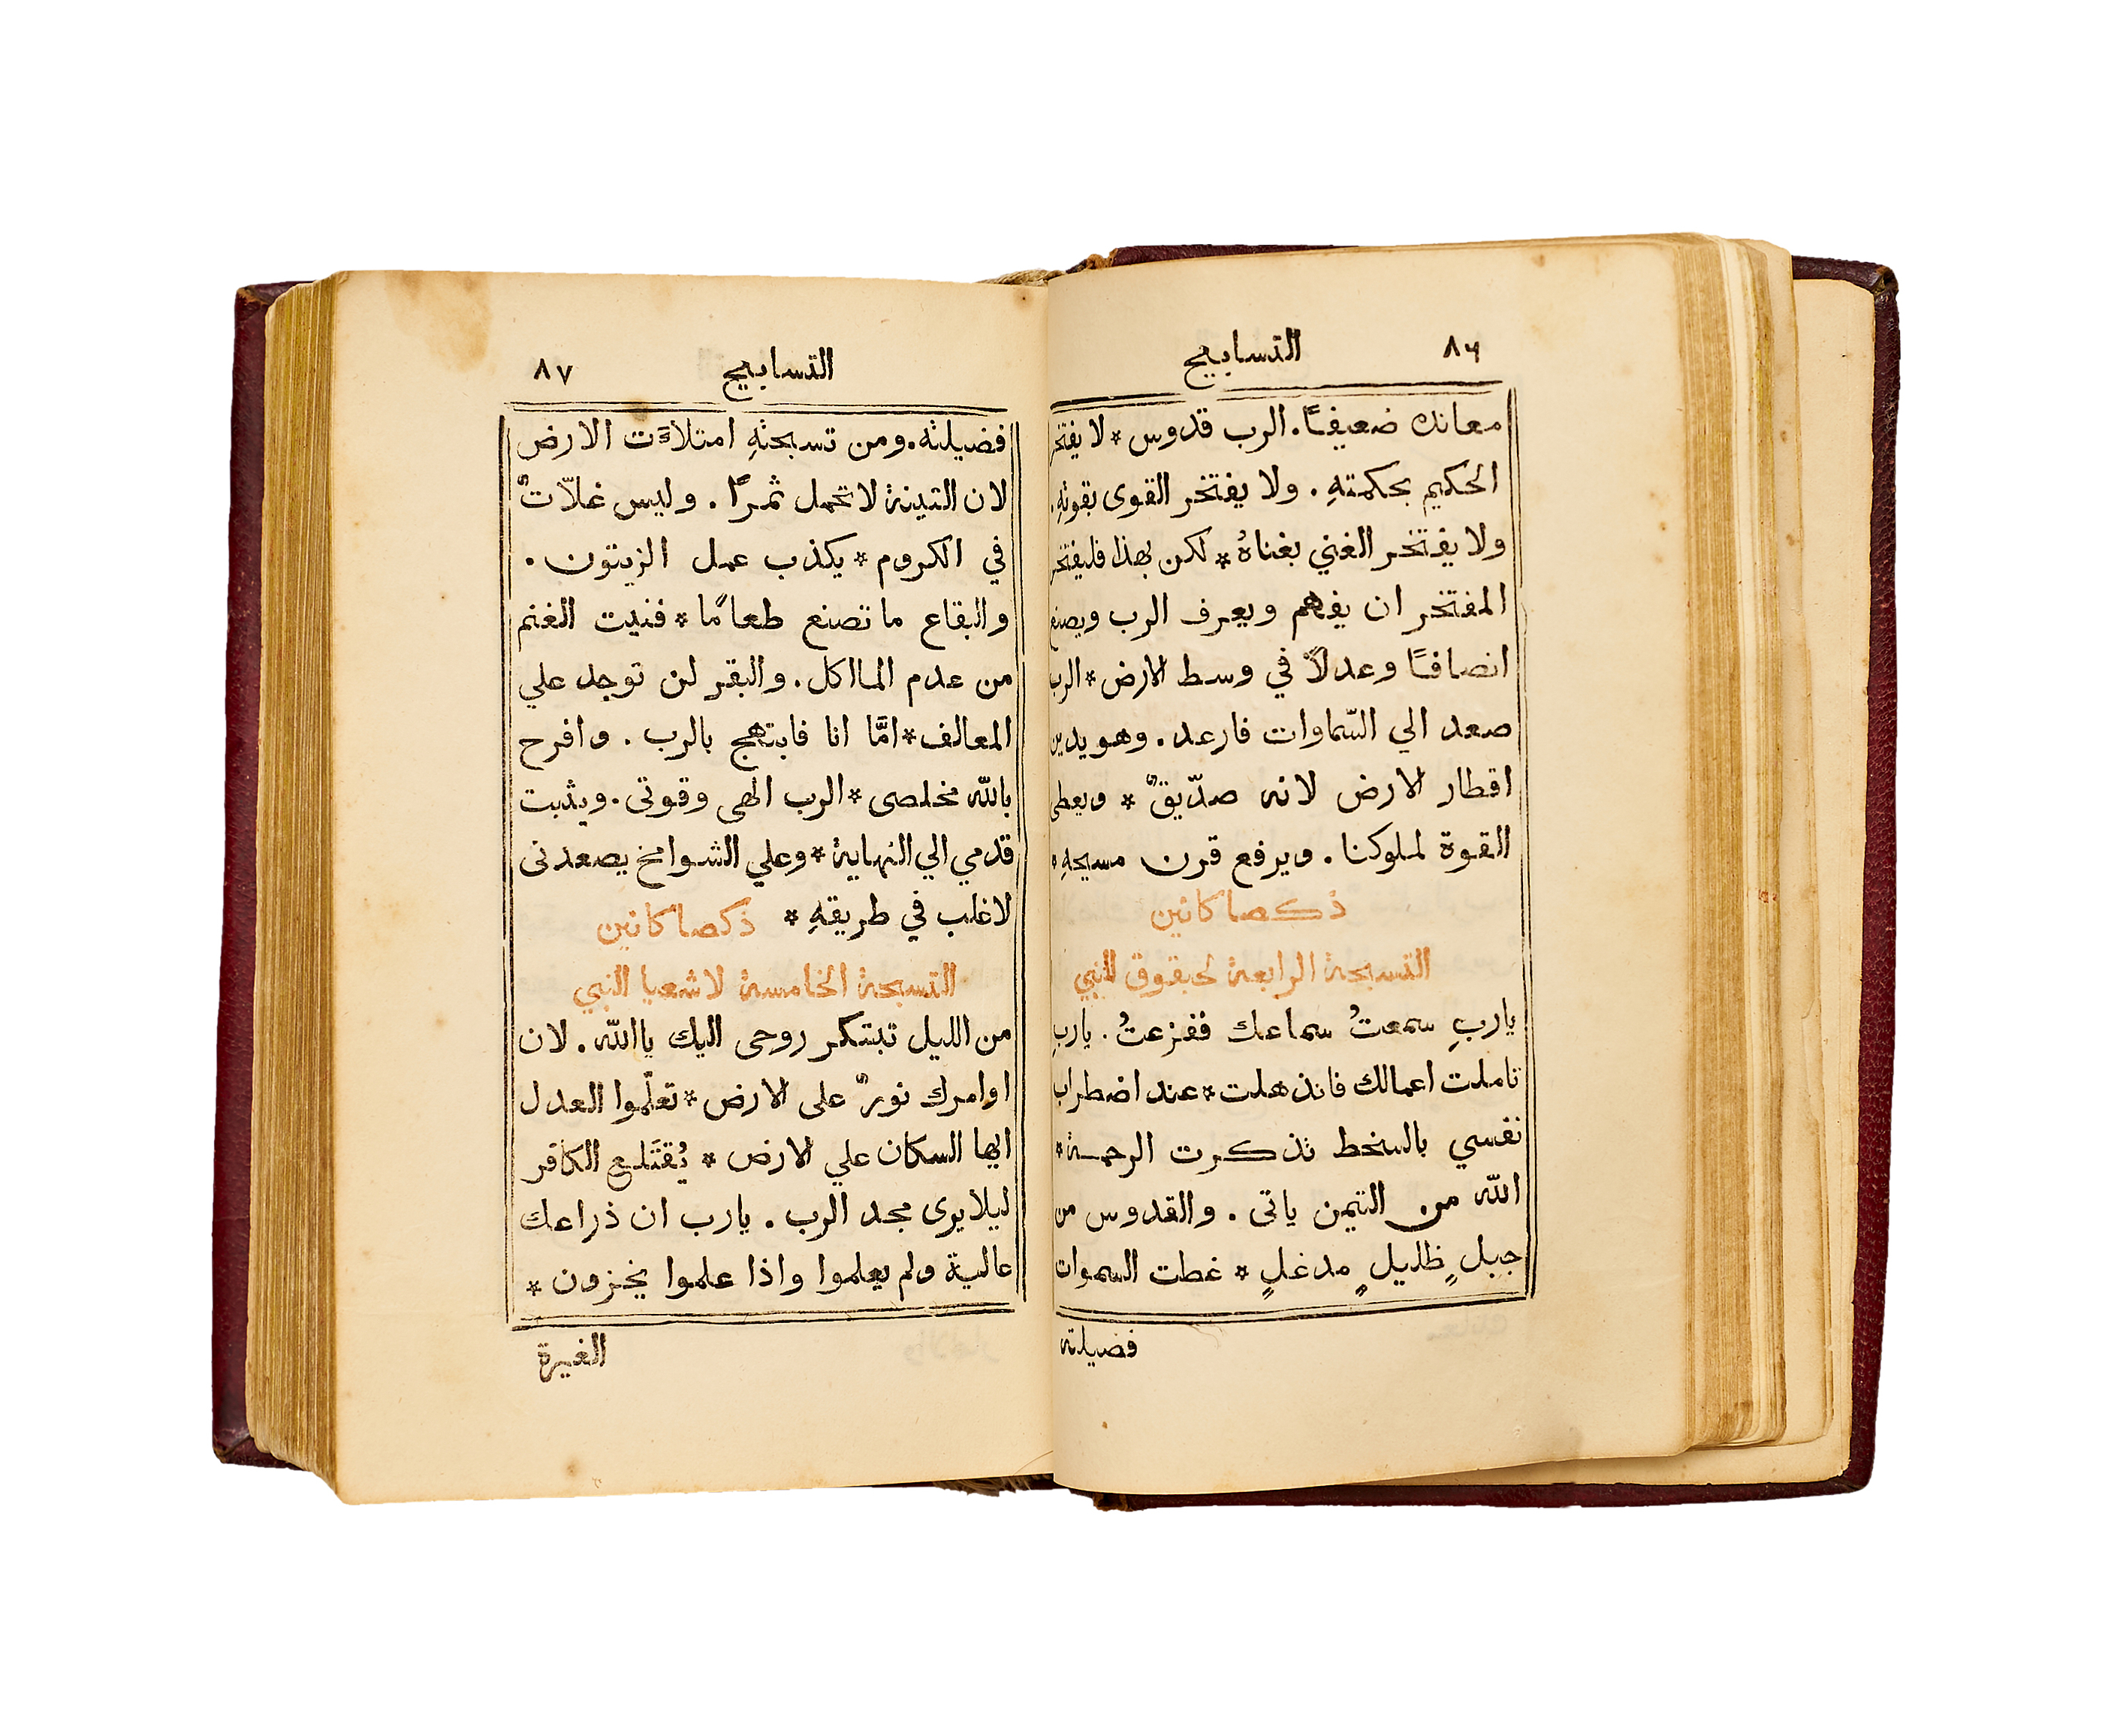 ٨٦ التسابيح
معانده ضعيفًا. الرب قدوس * لا يفتخر
الحكيم بحكمتهِ. ولا يفتخر القوى بقوتهِ.
ولا يفتخر الغني بغناهُ * لكن بهذا فليفتخر
المفتخر ان يفهم ويعرف الرب ويصنع
انصافًا وعدلاً في وسط الارض * الرب
صعد الي السّماوات فارعد. وهو يدين
اقطار الارض لانه صدّيقٌ * ويعطى
القوة لملوكنا. ويرفع قرن مسيحهِ *
ذكصاكانين
التسبحة الرابعة لحبقوق النبي
ياربِ سمعتُ سماعك ففزعتُ. ياربِ
تاملت اعمالك فانذهلت * عند اضطراب
نفسي بالسخط تذكرت الرحمة *
الله من التيمن ياتى. والقدوس من
جبلٍ ظليلٍ مدغلٍ * غطت السموات
فضيلته
التسابيح ٨٧
فضيلته. ومن تسبحتهِ امتلاَت الارض
لان التينة لا تحمل ثمرًا. وليس غلاّتٌ
في الكروم * يكذب عمل الزيتون.
والبقاع ما تصنع طعامًا * فنيت الغنم
من عدم المااكل. والبقر لن توجد علي
المعالف * امَّا انا فابتهج بالرب. وافرح
بالله مخلصى * الرب الهى وقوتى. ويثبت
قدمي الي النهاية * وعلي الشوامخ يصعدنى
لاغلب في طريقهِ * ذكصاكانين
التسبحة الخامسة لاشعيا النبي
من الليل تبتكر روحى اليك ياالله. لان
اوامرك نورٌ على الارض * تعلّموا العدل
ايها السكان علي الارض * يُقتَلع الكافر
ليلا يرى مجد الرب. يارب ان ذراعك
عالية ولم يعلموا واذا علموا يخزون *
الغيرة